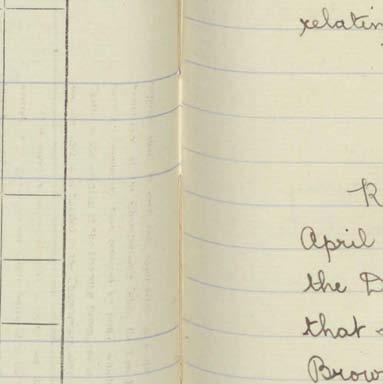 relatin
R
April
the D
that
Brow